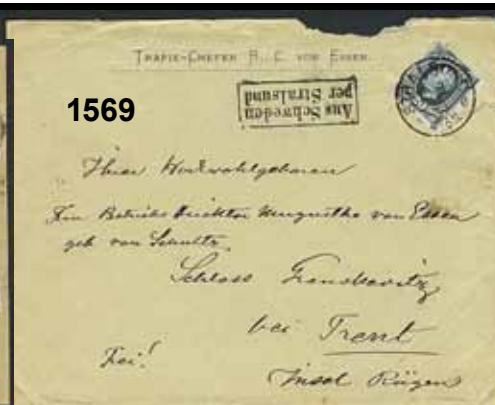 TRAFIK-CHEFEN R. C. VON ESSEN
1569
Aus Schweden
per Stralsund
Ihrer Hochwohlgeboren
Frau Betriebs Direktor von Essen
geb von Schultz
Schloss
bei Trent
Frei!
Insel Rügen